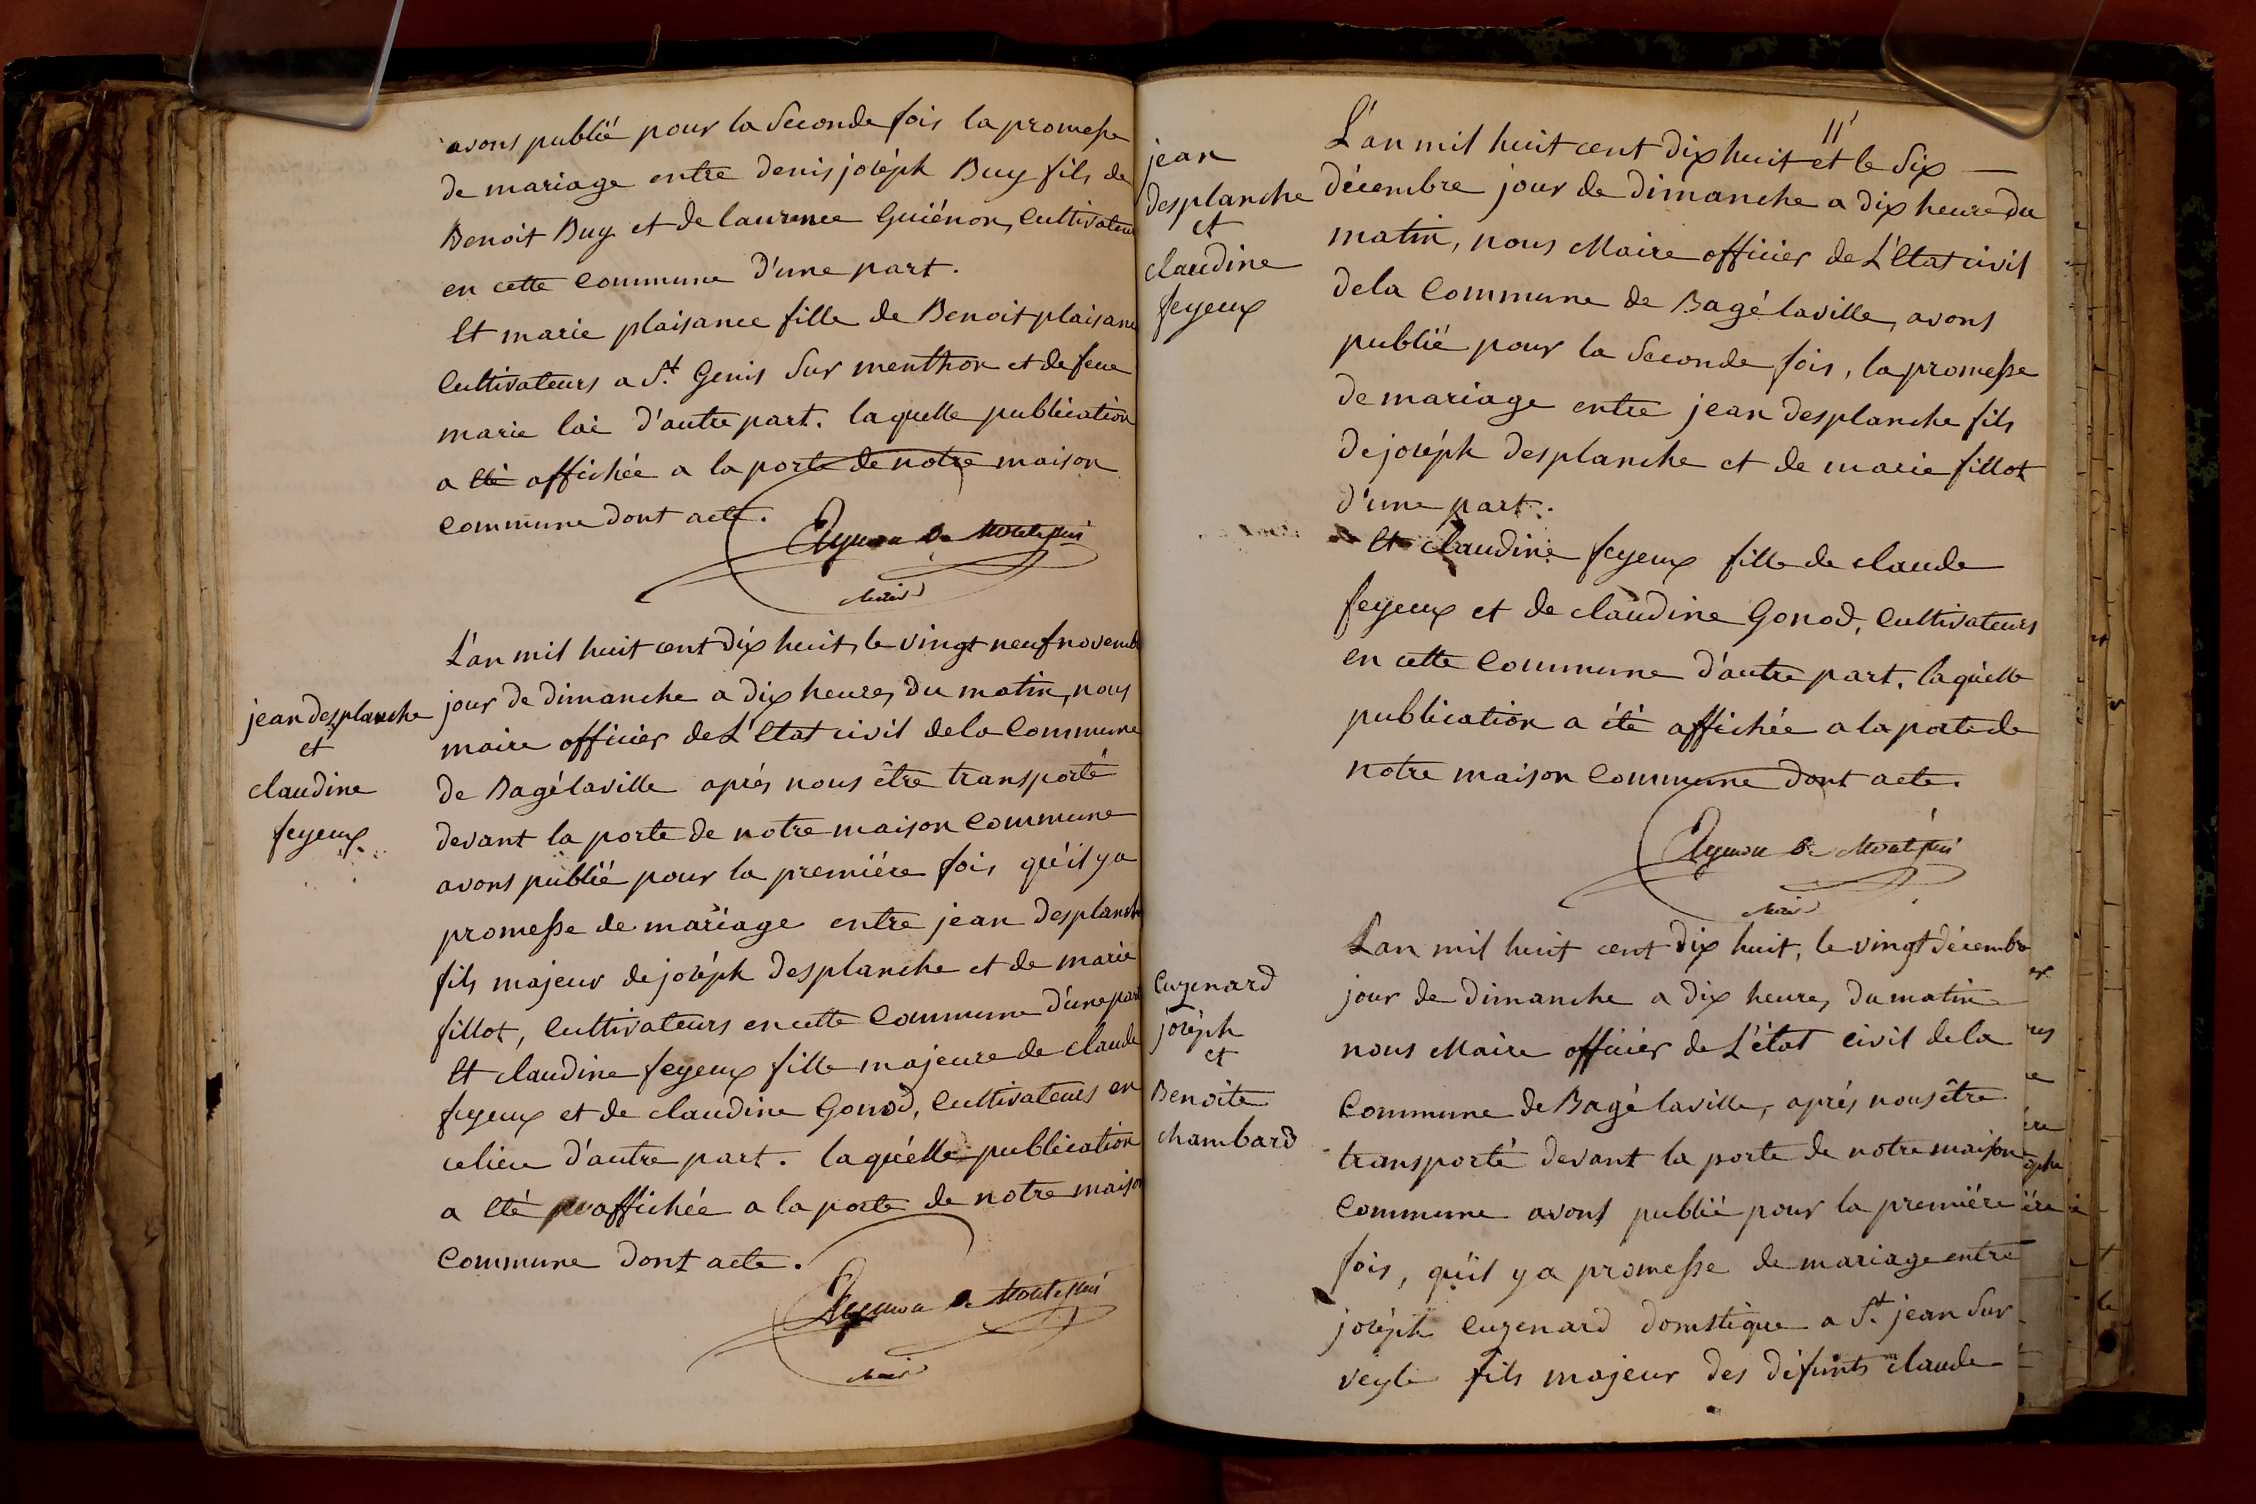 avons publié pour la Seconde fois la promesse
de mariage entre denis joséph Buy fils de
Benoit Buy et de laurence Guiénon, Cultivateur
en cette Commune d'une part.
Et marie plaisance fille de Benoit plaisance
Cultivateurs a St. Genis Sur menthon et de feue
marie d'autre part. laquelle publication
a Eté affichée a la porte de notre maison
Commune dont acte.
L'an mil huit cent dix huit, le vingt neuf novembre
jour de dimanche a dix heures du matin, nous
maire officier de L'Etat civil de la Commune
de Bagélaville aprés nous être transporté
devant la porte de notre maison Commune
avons publié pour la premiére fois qu'il y a
promesse de mariage entre jean desplanche
fils majeur de joséph desplanche et de marie
fillot, Cultivateurs en cette Commune d'une part
Et claudine feyeux fille majeure de claude
feyeux et de claudine Gonod, Cultivateurs en
ce lieu d'autre part. laquélle publication
a Eté affichée a la porte de notre maison
Commune dont acte.
maire
jean desplanche
et
claudine
feyeux
11
jean
desplanche
et
claudine
feyeux
L'an mil huit cent dix huit et le Six
décembre jour de dimanche a dix heure du
matin, nous Maire officier de L'Etat civil
de la Commune de Bagé laville, avons
publié pour la Seconde fois, la promesse
de mariage entre jean desplanche fils
de joséph desplanche et de marie fillot
d'une part.
Et claudine feyeux fille de claude
feyeux et de claudine Gonod, Cultivateurs
en cette Commune d'autre part, laquélle
publication a été affichée a la porte de
notre maison Commune dont acte.
maire
Cuzenard
joséph
et
Benoite
chambard
L'an mil huit cent dix huit, le vingt décembre
jour de dimanche a dix heures du matin
nous Maire officier de L'état civil de la
Commune de Bagé laville, aprés nous être
transporté devant la porte de notre maison
Commune avons publié pour la premiére
fois, qu'il y a promesse de mariage entre
joséph Cuzenard domstique a St. jean Sur
veyle fils majeur des défunts claude